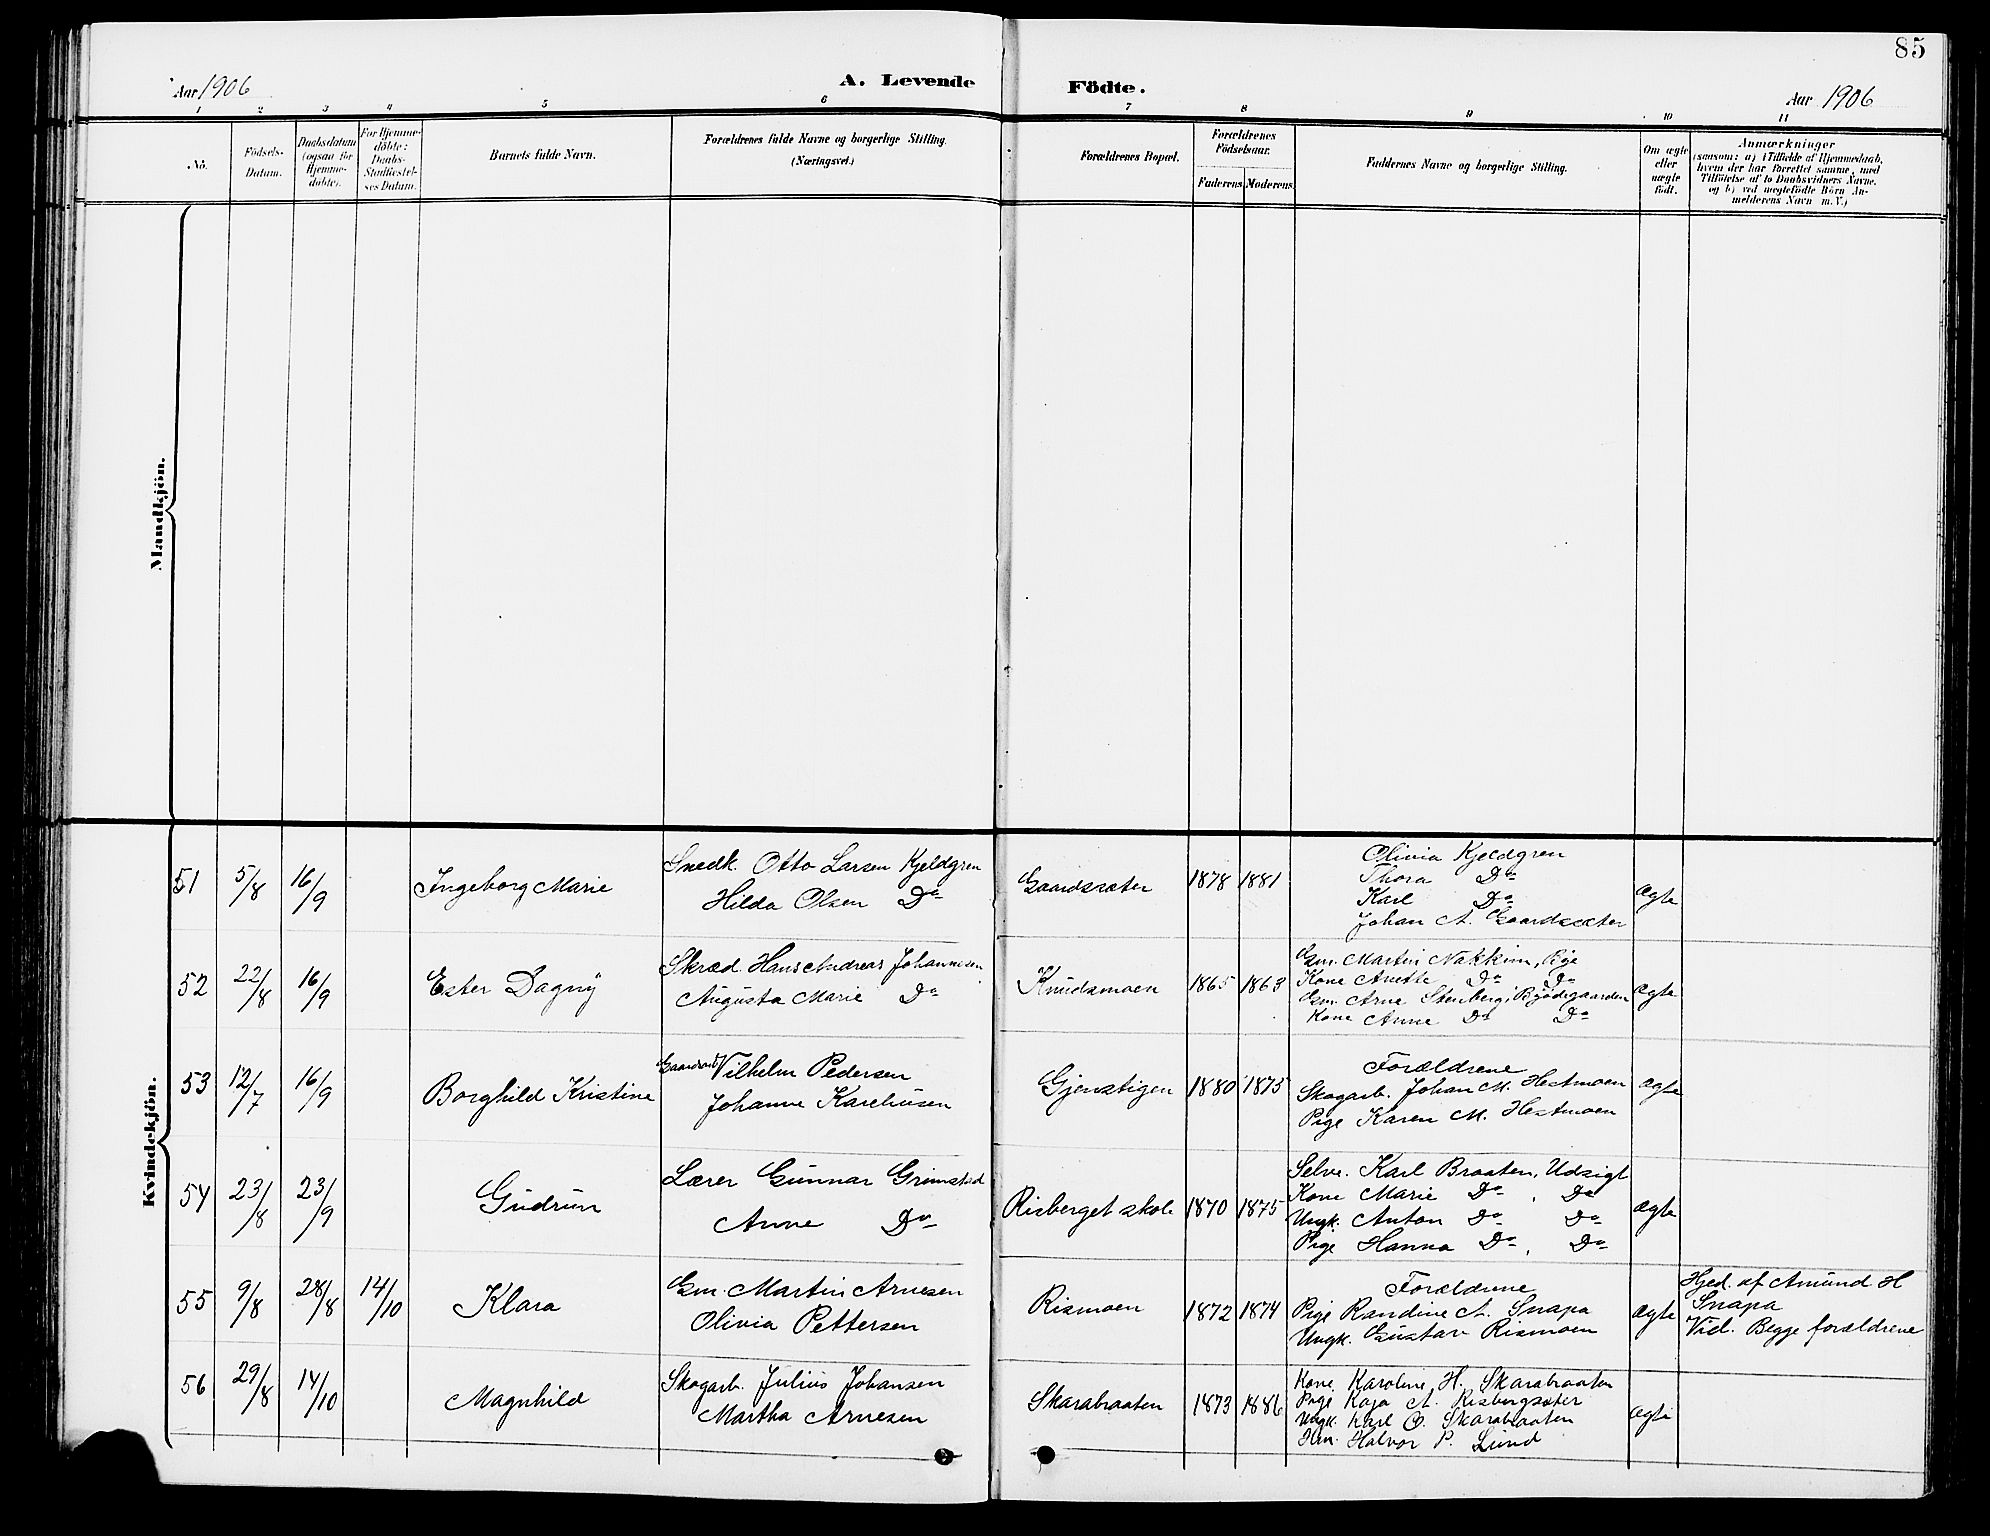 85
Aar 1906
A. Levende Födte.
Aar 1906
1 2 3 4 5 6 7 8 9 10 11
No.
Födsels-
Datum.
Daabsdatum
(ogsaa for
Hjemme-
döbte).
For Hjemme-
döbte:
Daabs-
Stadfæstel-
ses Datum.
Barnets fulde Navn.
Forældrenes fulde Navne og borgerlige Stilling.
(Næringsvei.)
Forældrenes Bopæl.
Forældrenes
Födselsaar.
Faderens Moderens
Faddernes Navne og borgerlige Stilling.
Om ægte
eller
uægte
födt.
Anmærkninger
(saasom: a) i Tilfælde af Hjemmedaab,
hvem der har forrettet samme, med
Tilföielse af to Daabsvidners Navne.
og b) ved uægtefödte Börn An-
melderens Navn m. V.)
Mandkjön.
Kvindekjön.
51 5/8 16/9 Ingeborg Marie
Snedk. Otto Larsen Kjeldgren
Hilda Olsen Do
Gaardsæter 1878 1881
Olivia Kjeldgren
Thora Do
Karl Do
Johan A. Gaardsæter
ægte
52 22/8 16/9 Ester Dagny
Skræd. Hans Andreas Johannesen
Augusta Marie Do
Knudsmoen 1865 1863
Gm. Martin Nakkim, Rye
Kone Anette Do Do
Gm. Arne Stenberg, Bjødegaarden
Kone Anne Do Do
ægte
53 12/7 16/9 Borghild Kristine
Gaardarb. Vilhelm Pedersen
Johanne Kareliusen
Gjenstigen 1880 1875
Forældrene
Skogarb. Johan M. Hestmoen
Pige Karen M. Hestmoen
ægte
54 23/8 23/9 Gudrun
Lærer Gunnar Grimstad
Anne Do
Risberget skole 1870 1875
Selve. Karl Braaten, Udsigt
Kone Marie Do, Do
Ungk. Anton Do Do
Pige Hanna Do, Do
ægte
55 9/8 28/8 14/10 Klara
Gm. Martin Arnesen
Olivia Pettersen
Rismoen 1872 1874
Forældrene
Pige Randine A. Snapa
Ungk. Gustav Rismoen
ægte
Hjed. af Amund H
Snapa
Vid. Begge forældrene
56 29/8 14/10 Magnhild
Skogarb. Julius Johansen
Martha Arnesen
Skarabraaten 1873 1886
Kone Karoline H. Skarabraaten
Pige Kaja A. Risbergsæter
Ungk. Karl O. Skarabraaten
Hm. Halvor P. Lund
ægte